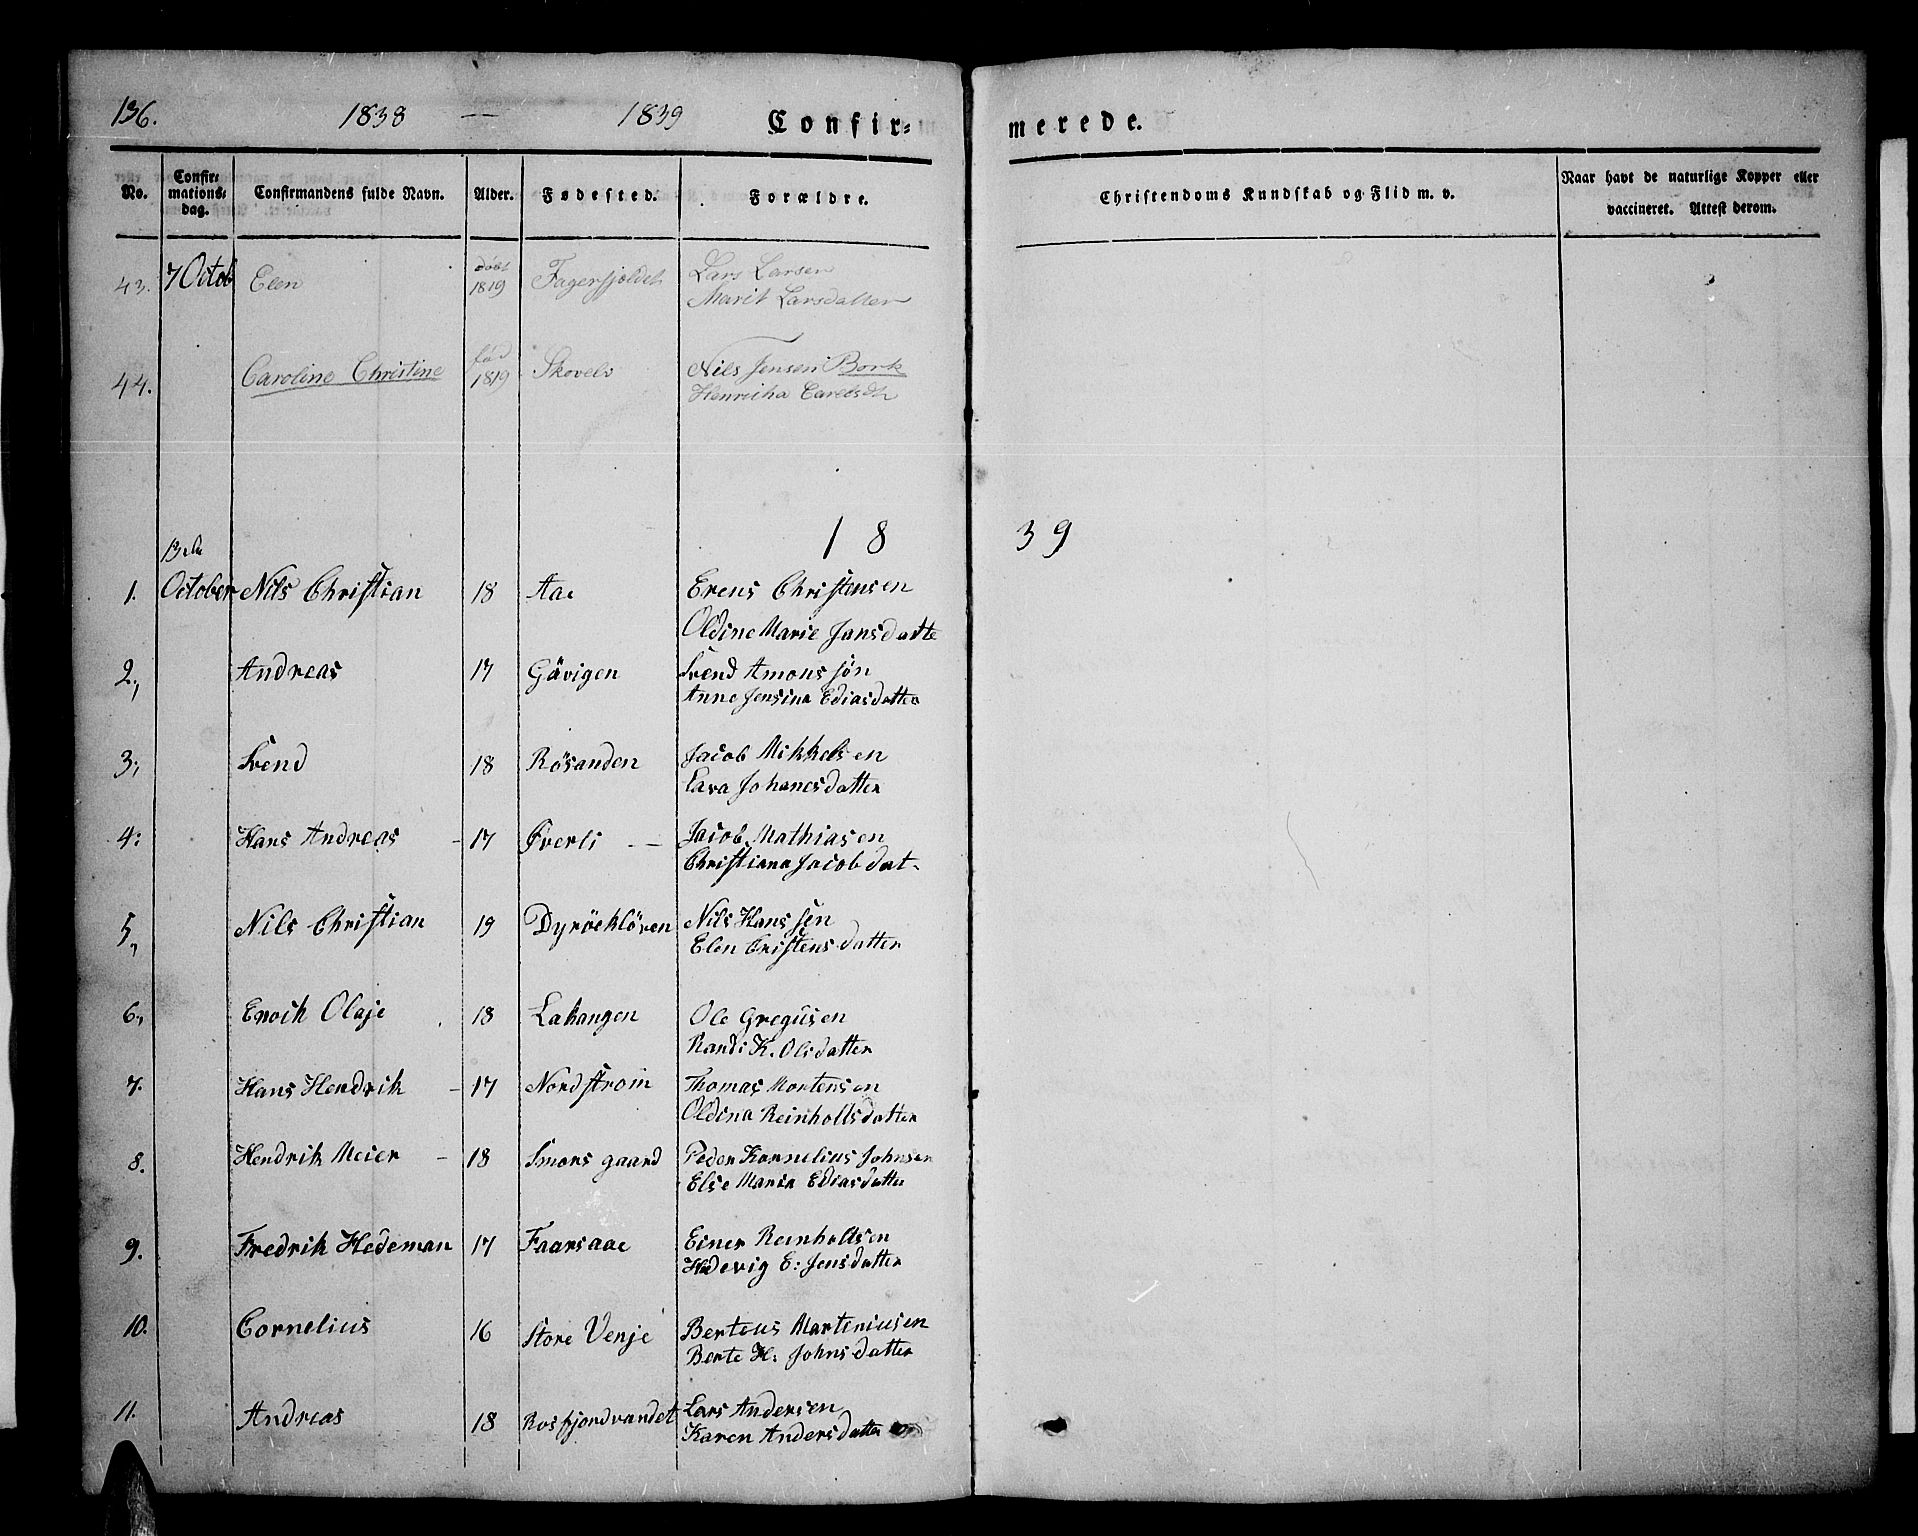 136. 1838 — 1839 Confir= merede.
No. Confir=mations=dag. Confirmandens fulde Navn. Alder. Fødested. Forældre. Christendoms Kundskab og Flid m. v. Naar havt de naturlige Kopper eller vaccineret. Attest derom.
43. 7 Octob Elen døbt 1819 Fagerfjeldet Lars Larsen
Marit Larsdatter
44. Caroline Christine fød 1819 Skovelv Nils Jensen Bork
Henricha Carelsdt
18 39
13de
1. October Nils Christian 18 Aae Erens Christensen
Oldine Marie Jansdatte
2., Andreas 17 Gåvigen Svend Amonssøn
Anne Jensina Ediasdatter
3., Svend 18 Rösanden Jacob Mikkelsen
Lava Johanesdatter
4: Hans Andreas - 17 Øverli - — Jacob Mathiasen
Christiana Jacobdat-
5., Nils Christian 19 Dyröeklöven Nils Hanssen
Elen Cristensdatter
6., Enoik Olaje 18 Lakangen Ole Gregusen
Randi K. Olsdatter
7. Hans Hendrik - 17 Nordstrom Thomas Mortensen
Oldina Reinholtsdatter
8. Hendrik Meier - 18 Smorsgaard Peder Kornelius Johnsen
Else Maria Ediasdatter
9. Fredrik Hedeman 17 Faarsaae Einer Reinholtsen
Hedevig E: Jensdatter
10. Cornelius 16 Store Venje Berteus Martiniusen
Berte H. Johnsdatter
11. Andreas 18 Rosfjordvandet Lars Andersen
Karen Andersdatter